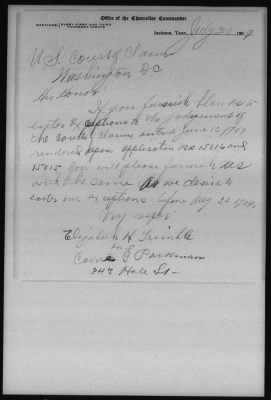 Office of the Chancellor Commander
MEETINGS EVERY FIRST AND THIRD
THURSDAY NIGHTS
Jackson, Tenn. July 20 1909
U S Court of Claims
Washington D.C.
His Honor:
If you furnish blanks to
enter exceptions to the judgement of
the Court of Claims entered June 10, 1909
rendered upon application No 15016 and
15015 You will please furnish us
with the same as we desire to
enter our exceptions before Aug 30 1909.
Very respt
Elizabeth H Trimble
Cora G Parkman
344 Hale St